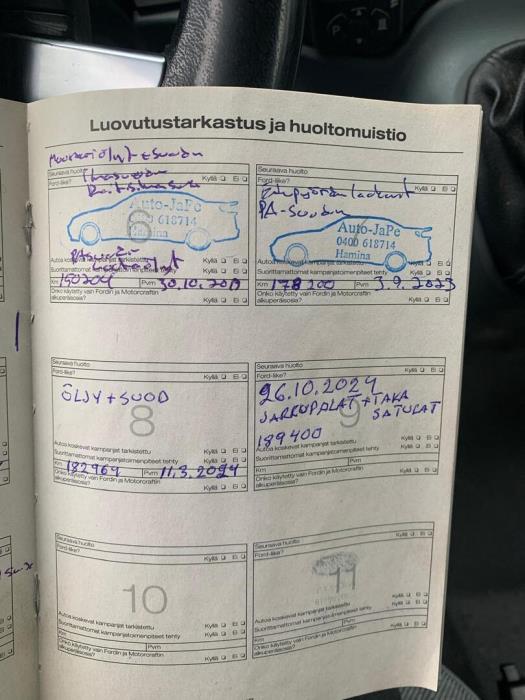 Luovutustarkastus ja huoltomuistio
Moottoriöljyt + suodin
Seuraava huolto
Ford-liike?
Kyllä Ei
Raitisilma
6
Auto-JaPe
618714
Hamina
Autoa koskevat kampanjat tarkistettu
Kyllä Ei
Suorittamattomat kampanjatoimenpiteet tehty
Kyllä Ei
Km 150204 Pvm 30.10.2019
Onko käytetty vain Fordin ja Motorcraftin
alkuperäisosia?
Kyllä Ei
Seuraava huolto
Ford-liike?
Kyllä Ei
PA-suodin
Auto-JaPe
0400 618714
Hamina
Kyllä Ei
Suorittamattomat kampanjatoimenpiteet tehty
Kyllä Ei
Km 178 200 Pvm 3.9.2023
Onko käytetty vain Fordin ja Motorcraftin
alkuperäisosia?
Kyllä Ei
Seuraava huolto
Ford-liike?
Kyllä Ei
ÖLJY + SUOD
8
Autoa koskevat kampanjat tarkistettu
Kyllä Ei
Suorittamattomat kampanjatoimenpiteet tehty
Kyllä Ei
Km 182969 Pvm 11.3.2024
Onko käytetty vain Fordin ja Motorcraftin
alkuperäisosia?
Kyllä Ei
Seuraava huolto
Ford-liike?
Kyllä Ei
26.10.2024
JARRUPALAT + TAKA
SATULAT
9
189400
Autoa koskevat kampanjat tarkistettu
Kyllä Ei
Suorittamattomat kampanjatoimenpiteet tehty
Kyllä Ei
Km Pvm
Onko käytetty vain Fordin ja Motorcraftin
alkuperäisosia?
Kyllä Ei
Seuraava huolto
Ford-liike?
Kyllä Ei
10
Autoa koskevat kampanjat tarkistettu
Kyllä Ei
Suorittamattomat kampanjatoimenpiteet tehty
Kyllä Ei
Km Pvm
Onko käytetty vain Fordin ja Motorcraftin
alkuperäisosia?
Kyllä Ei
Seuraava huolto
Ford-liike?
Kyllä Ei
11
Autoa koskevat kampanjat tarkistettu
Kyllä Ei
Suorittamattomat kampanjatoimenpiteet tehty
Kyllä Ei
Km Pvm
Onko käytetty vain Fordin ja Motorcraftin
alkuperäisosia?
Kyllä Ei